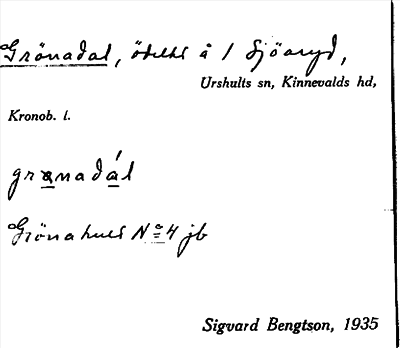 Grönadal, ödelht å 1 Sjöaryd,
Urshults sn, Kinnevalds hd,
Kronob. l.
grønadál
Grönahult No 4 jb
Sigvard Bengtson, 1935